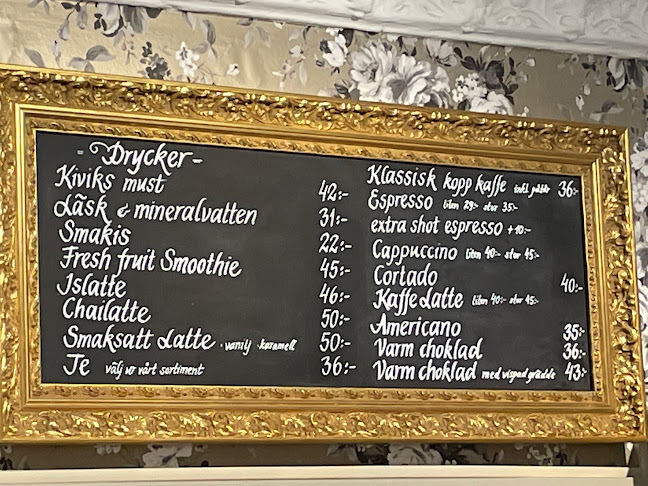 - Drycker -
Kiviks must 42:-
Läsk & mineralvatten 31:-
Smakis 22:-
Fresh fruit Smoothie 45:-
Islatte 46:-
Chailatte 50:-
Smaksatt Latte · vanilj · karamell 50:-
Te välj ur vårt sortiment 36:-
Klassisk kopp kaffe inkl. påtår 36:-
Espresso liten 29:- stor 35:-
extra shot espresso +10:-
Cappuccino liten 40:- stor 45:-
Cortado 40:-
Kaffe Latte liten 40:- stor 45:-
Americano 35:-
Varm choklad 36:-
Varm choklad med vispad grädde 43:-